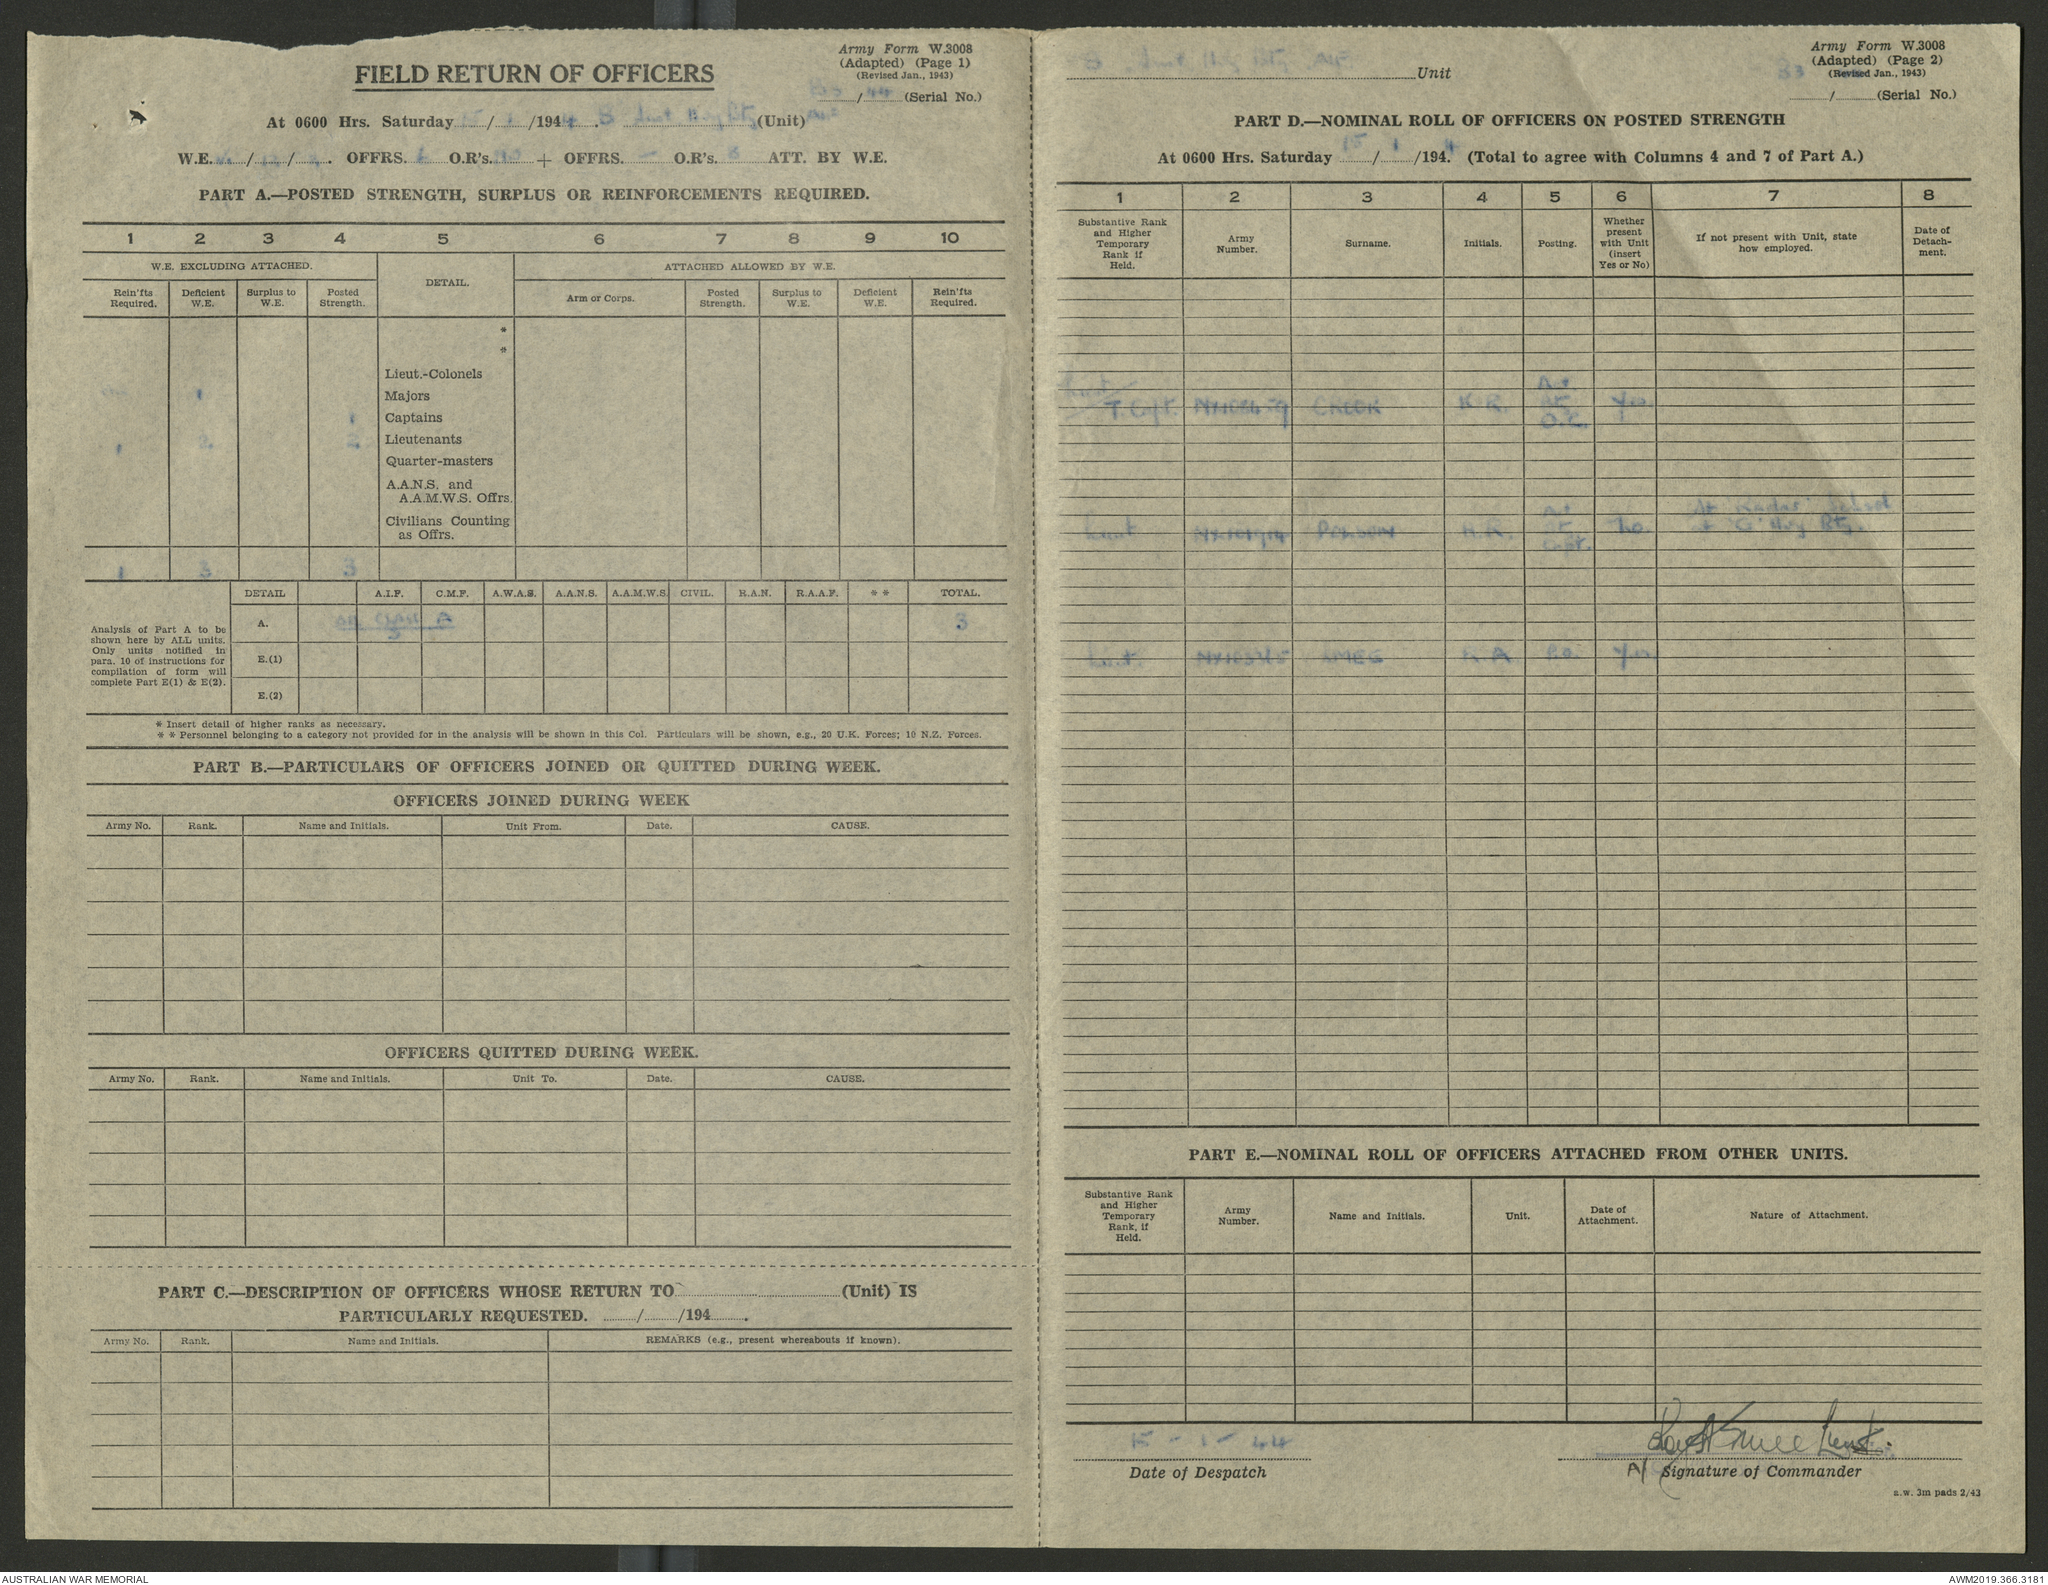 Army Form W.3008
(Adapted) (Page 1)
(Revised Jan., 1943)
FIELD RETURN OF OFFICERS
/ (Serial No.)
At 0600 Hrs. Saturday / /194 (Unit)
W.E. / / . OFFRS. O.R's. + OFFRS. — O.R's. 8 ATT. BY W.E.
PART A.—POSTED STRENGTH, SURPLUS OR REINFORCEMENTS REQUIRED.
1 2 3 4 5 6 7 8 9 10
W.E. EXCLUDING ATTACHED. DETAIL. ATTACHED ALLOWED BY W.E.
Rein'fts Required. Deficient W.E. Surplus to W.E. Posted Strength. Arm or Corps. Posted Strength. Surplus to W.E. Deficient W.E. Rein'fts Required.
*
*
Lieut.-Colonels
1 Majors
1 Captains
1 2 2 Lieutenants
Quarter-masters
A.A.N.S. and
A.A.M.W.S. Offrs.
Civilians Counting
as Offrs.
1 3 3
DETAIL A.I.F. C.M.F. A.W.A.S. A.A.N.S. A.A.M.W.S. CIVIL. R.A.N. R.A.A.F. * * TOTAL.
Analysis of Part A to be
shown here by ALL units.
Only units notified in
para. 10 of instructions for
compilation of form will
complete Part E(1) & E(2).
A. Class A 3
3
E.(1)
E.(2)
* Insert detail of higher ranks as necessary.
* * Personnel belonging to a category not provided for in the analysis will be shown in this Col. Particulars will be shown, e.g., 20 U.K. Forces; 10 N.Z. Forces.
PART B.—PARTICULARS OF OFFICERS JOINED OR QUITTED DURING WEEK.
OFFICERS JOINED DURING WEEK
Army No. Rank. Name and Initials. Unit From. Date. CAUSE.
OFFICERS QUITTED DURING WEEK.
Army No. Rank. Name and Initials. Unit To. Date. CAUSE.
PART C.—DESCRIPTION OF OFFICERS WHOSE RETURN TO (Unit) IS
PARTICULARLY REQUESTED. / /194 .
Army No. Rank. Name and Initials. REMARKS (e.g., present whereabouts if known).
Army Form W.3008
(Adapted) (Page 2)
(Revised Jan., 1943)
Hvy Bty Unit
/ (Serial No.)
PART D.—NOMINAL ROLL OF OFFICERS ON POSTED STRENGTH
At 0600 Hrs. Saturday 15 / 1 /194 4. (Total to agree with Columns 4 and 7 of Part A.)
1 2 3 4 5 6 7 8
Substantive Rank and Higher Temporary Rank if Held. Army Number. Surname. Initials. Posting. Whether present with Unit (insert Yes or No) If not present with Unit, state how employed. Date of Detachment.
Lieut
T. Capt. K.R. O.C. Yes
Lieut No. At 'Radar' School
at 'G' Hvy Bty.
Lieut. Yes
PART E.—NOMINAL ROLL OF OFFICERS ATTACHED FROM OTHER UNITS.
Substantive Rank and Higher Temporary Rank, if Held. Army Number. Name and Initials. Unit. Date of Attachment. Nature of Attachment.
15 - 1 - 44
Date of Despatch
Lieut.
A/ Signature of Commander
a.w. 3m pads 2/43
AUSTRALIAN WAR MEMORIAL
AWM2019.366.3181